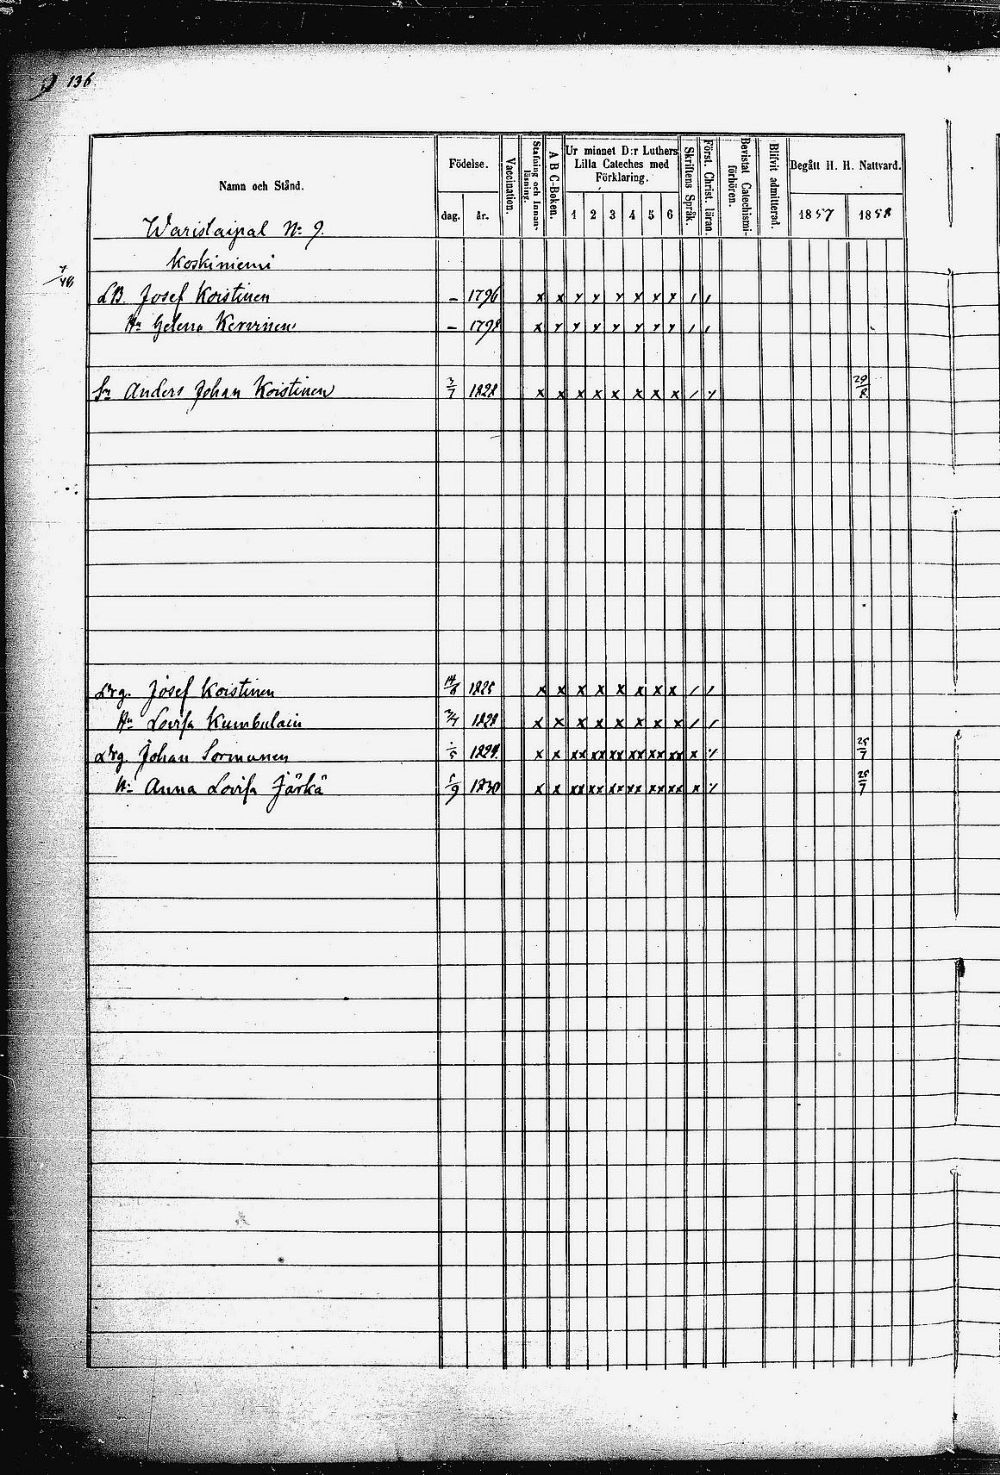 136
Namn och Stånd.
Födelse.
dag.
år.
Vaccination.
Stafning och Innan-
läsning.
A B C-Boken.
Ur minnet D:r Luthers
Lilla Cateches med
Förklaring.
1 2 3 4 5 6
Skriftens Språk.
Först. Christ. läran.
Bevistat Catechismi-
förhören.
Blifvit admitterad.
Begått H. H. Nattvard.
1857 1858
Warislaipal N:o 9.
Koskiniemi
7/48
LB. Josef Koistinen – 1796 x x x x x x x x / /
Hu Helena Kervinen – 1798 x x x x x x x x / /
Sn Anders Johan Koistinen 3/7 1828 x x x x x x x x / 29/8
Drg. Josef Koistinen 14/8 1825 x x x x x x x x / /
Hu Lovisa Kumbulain 3/7 1828 x x x x x x x x / /
Drg. Johan Sormunen /5 1829 x x xx xx xx xx xx xx x 25/7
Hu Anna Lovisa Järkä 5/9 1830 x x xx xx xx xx xx xx x 25/7